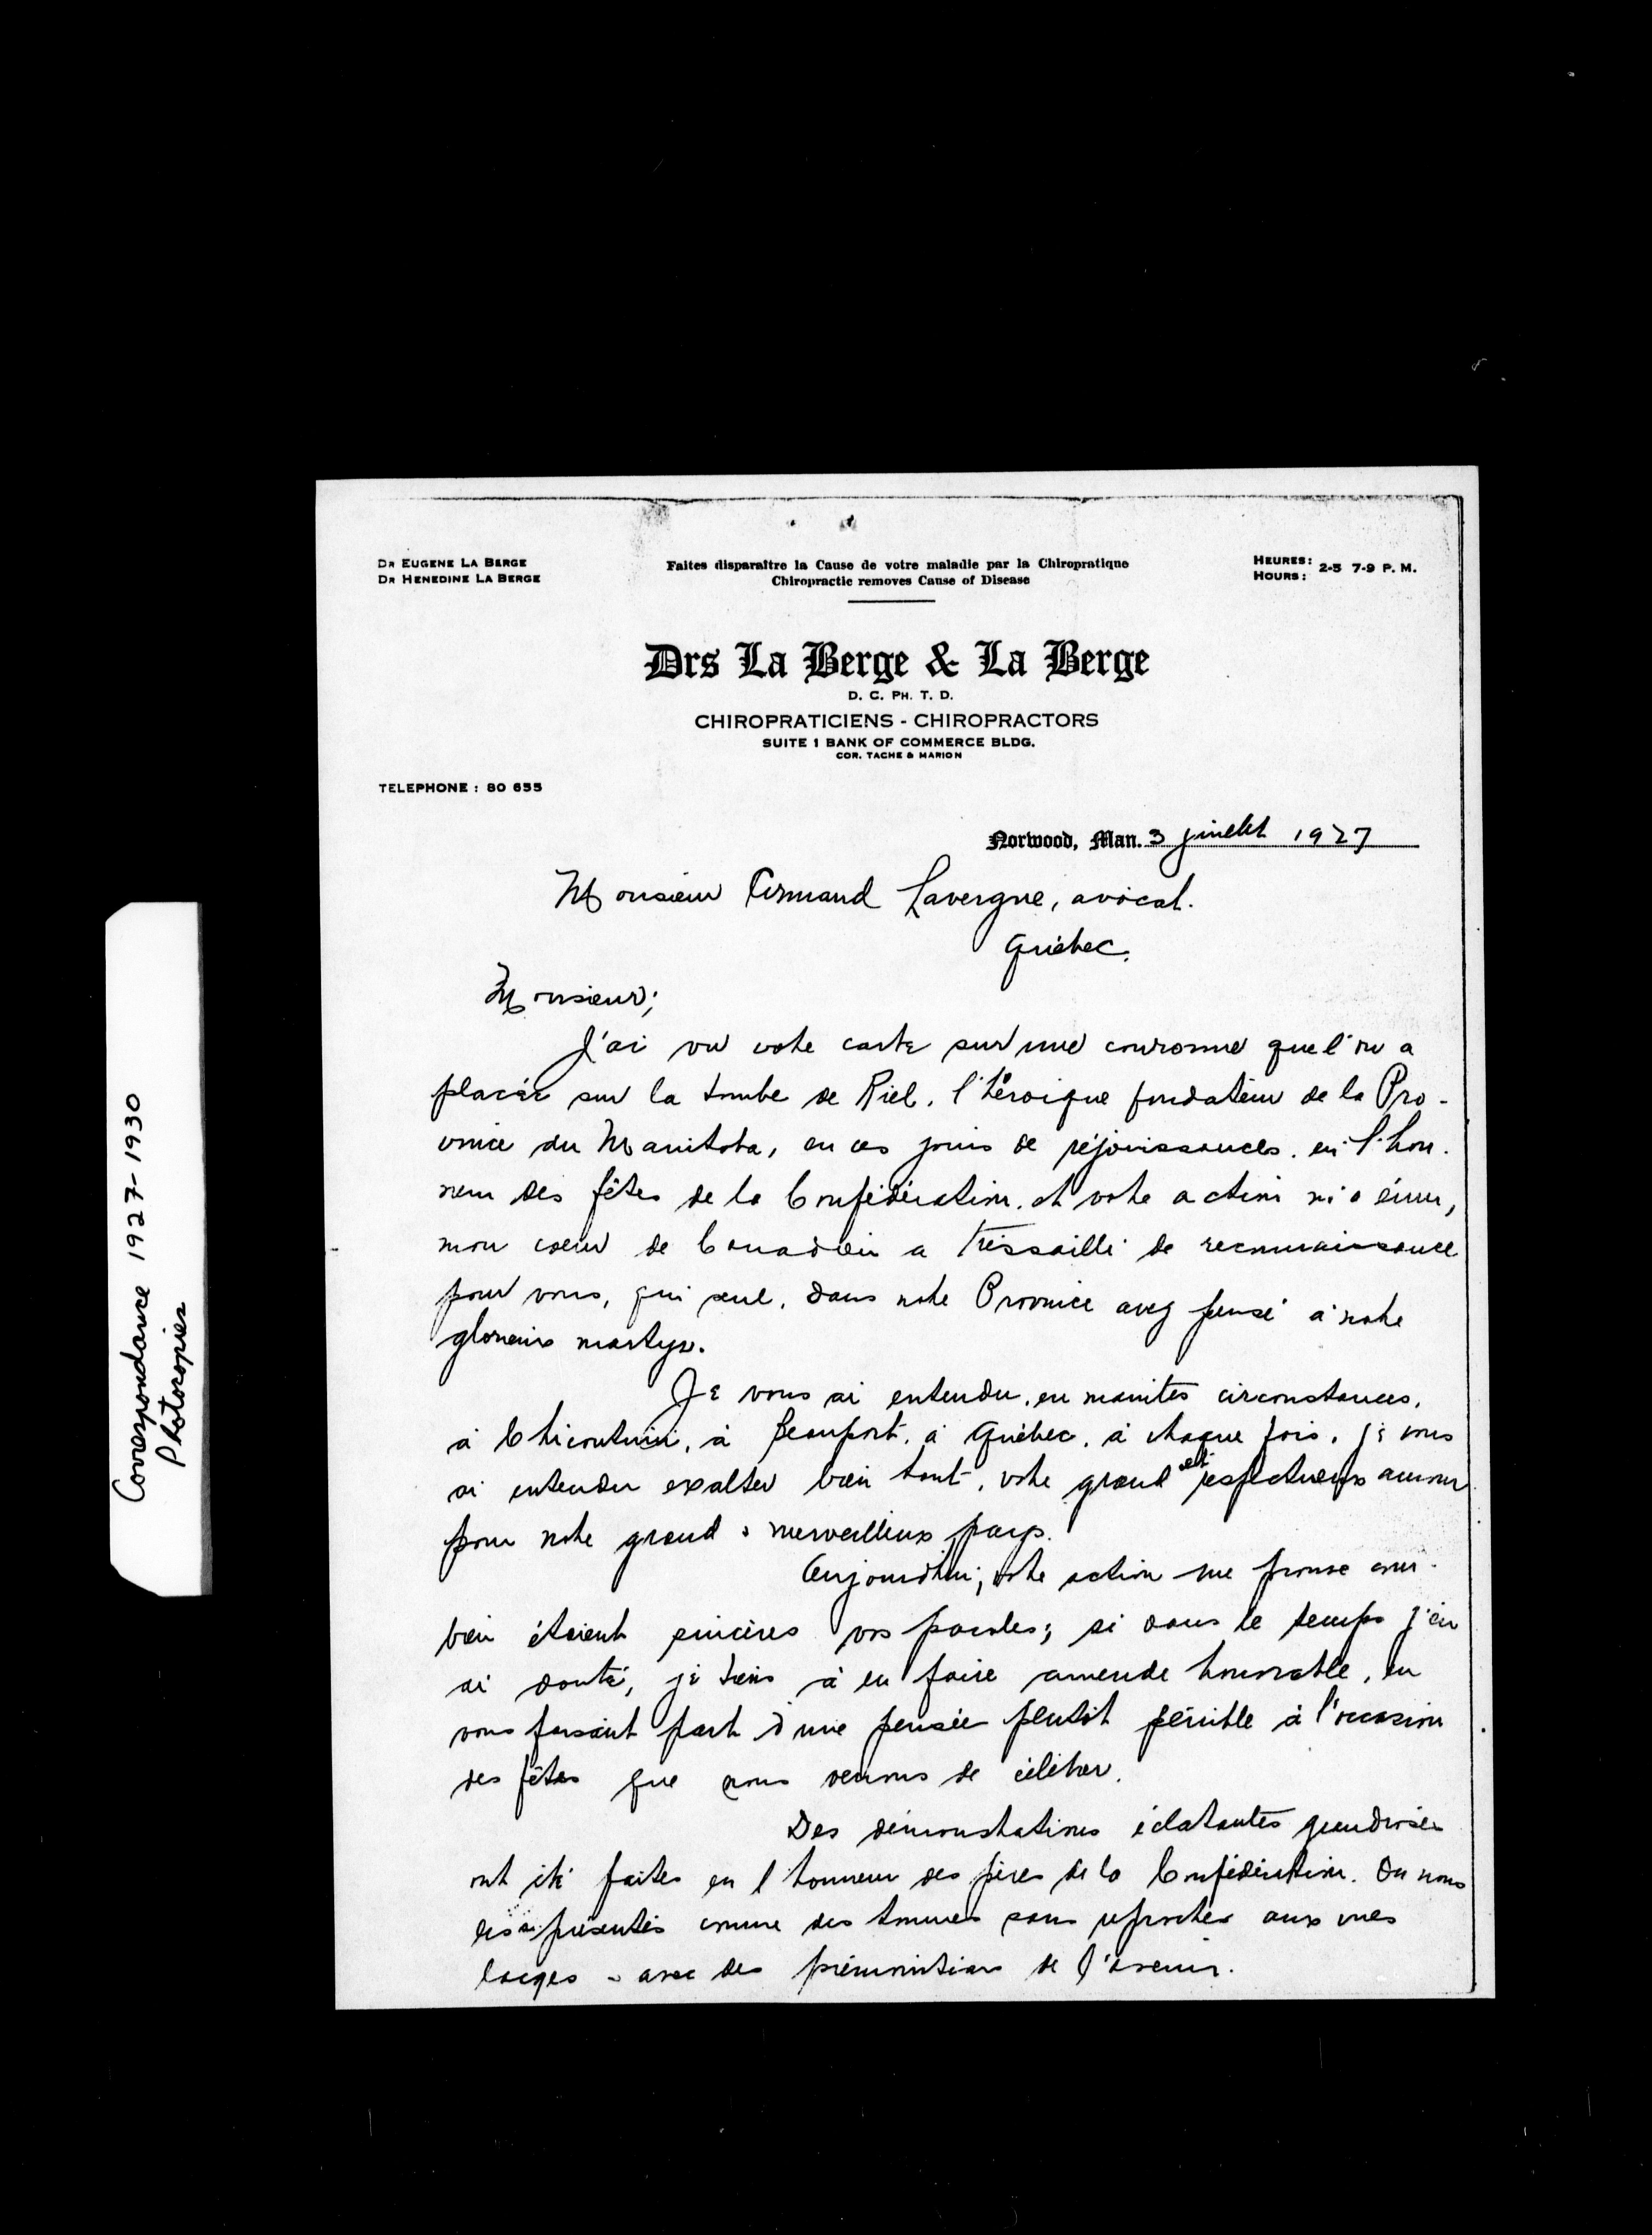 Correspondance 1927-1930
Photocopies
DR EUGENE LA BERGE
DR HENEDINE LA BERGE
Faites disparaître la Cause de votre maladie par la Chiropratique
Chiropractic removes Cause of Disease
HEURES: 2-5 7-9 P. M.
HOURS:
Drs La Berge & La Berge
D. C. PH. T. D.
CHIROPRATICIENS - CHIROPRACTORS
SUITE 1 BANK OF COMMERCE BLDG.
COR. TACHE & MARION
TELEPHONE : 80 655
Norwood, Man. 3 juillet 1927
Monsieur Armand Lavergne, avocat.
Québec.
Monsieur;
J'ai vu votre carte sur une couronne que l'on a
placée sur la tombe de Riel, l'héroique fondateur de la Pro-
vince du Manitoba, en ces jours de réjouissances, en l'hon-
neur des fêtes de la Confédération, et votre action m'a ému,
mon coeur de Canadien a tressailli de reconnaissance
pour vous, qui seul, dans notre Province avez pensé à notre
glorieux martyr.
Je vous ai entendu, en maintes circonstances,
à Chicoutimi, à Beauport, à Québec, à chaque fois, je vous
ai entendu exalter bien haut, votre grand et respectueux amour
pour notre grand & merveilleux pays.
Aujourd'hui; votre action me prouve com-
bien étaient sincères vos paroles; si dans le temps j'en
ai douté, je tiens à en faire amende honorable, en
vous faisant part d'une pensée plutôt pénible à l'occasion
des fêtes que nous venons de célébrer.
Des démonstrations éclatantes grandioses
ont été faites en l'honneur des pères de la Confédération. On nous
les a présentés comme des hommes sans reproches aux vues
larges & avec des prémonitions de l'avenir.